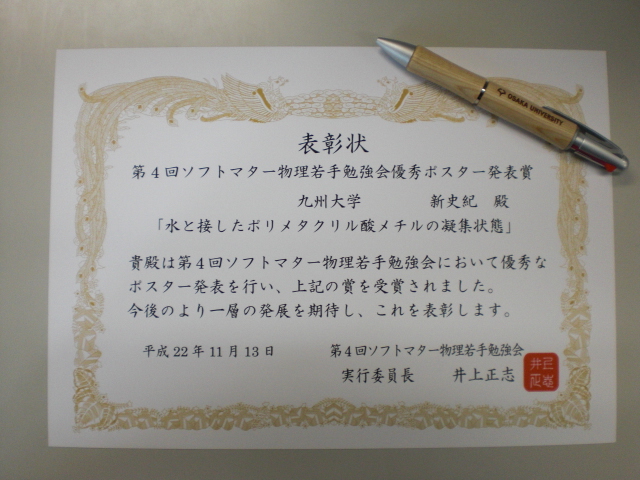 表彰状
第4回ソフトマター物理若手勉強会優秀ポスター発表賞
九州大学 新史紀 殿
「水と接したポリメタクリル酸メチルの凝集状態」
貴殿は第4回ソフトマター物理若手勉強会において優秀な
ポスター発表を行い、上記の賞を受賞されました。
今後のより一層の発展を期待し、これを表彰します。
平成22年11月13日
第4回ソフトマター物理若手勉強会
実行委員長 井上正志
OSAKA UNIVERSITY